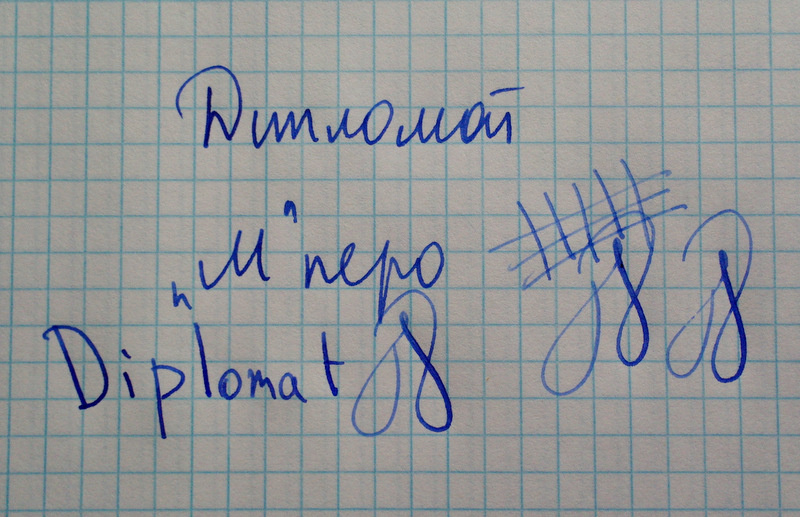 Дипломат
„М" перо
Diplomat